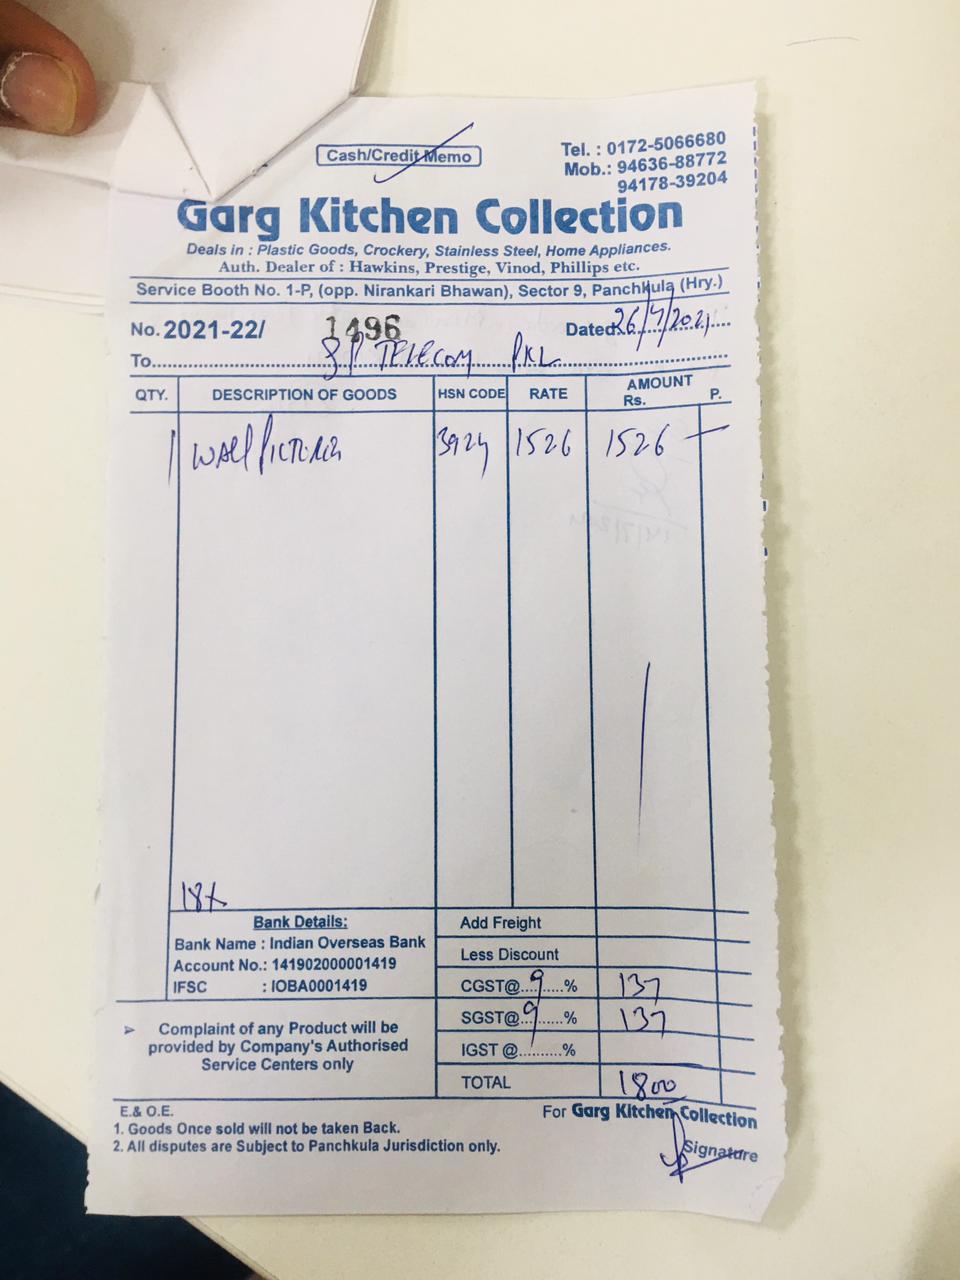 Cash/Credit Memo
Tel. : 0172-5066680
Mob.: 94636-88772
94178-39204
Garg Kitchen Collection
Deals in : Plastic Goods, Crockery, Stainless Steel, Home Appliances.
Auth. Dealer of : Hawkins, Prestige, Vinod, Phillips etc.
Service Booth No. 1-P, (opp. Nirankari Bhawan), Sector 9, Panchkula (Hry.)
No. 2021-22/ 1496 Dated 26/7/2021
To TELECOM PKL
QTY. DESCRIPTION OF GOODS HSN CODE RATE AMOUNT Rs. P.
1 WALL PICTURES 3924 1526 1526 —
18%
Bank Details:
Bank Name : Indian Overseas Bank
Account No.: 141902000001419
IFSC : IOBA0001419
Add Freight
Less Discount
CGST@...9...% 137
SGST@...9...% 137
IGST @..........%
TOTAL 1800
➢ Complaint of any Product will be
provided by Company's Authorised
Service Centers only
E.& O.E.
1. Goods Once sold will not be taken Back.
2. All disputes are Subject to Panchkula Jurisdiction only.
For Garg Kitchen Collection
Signature